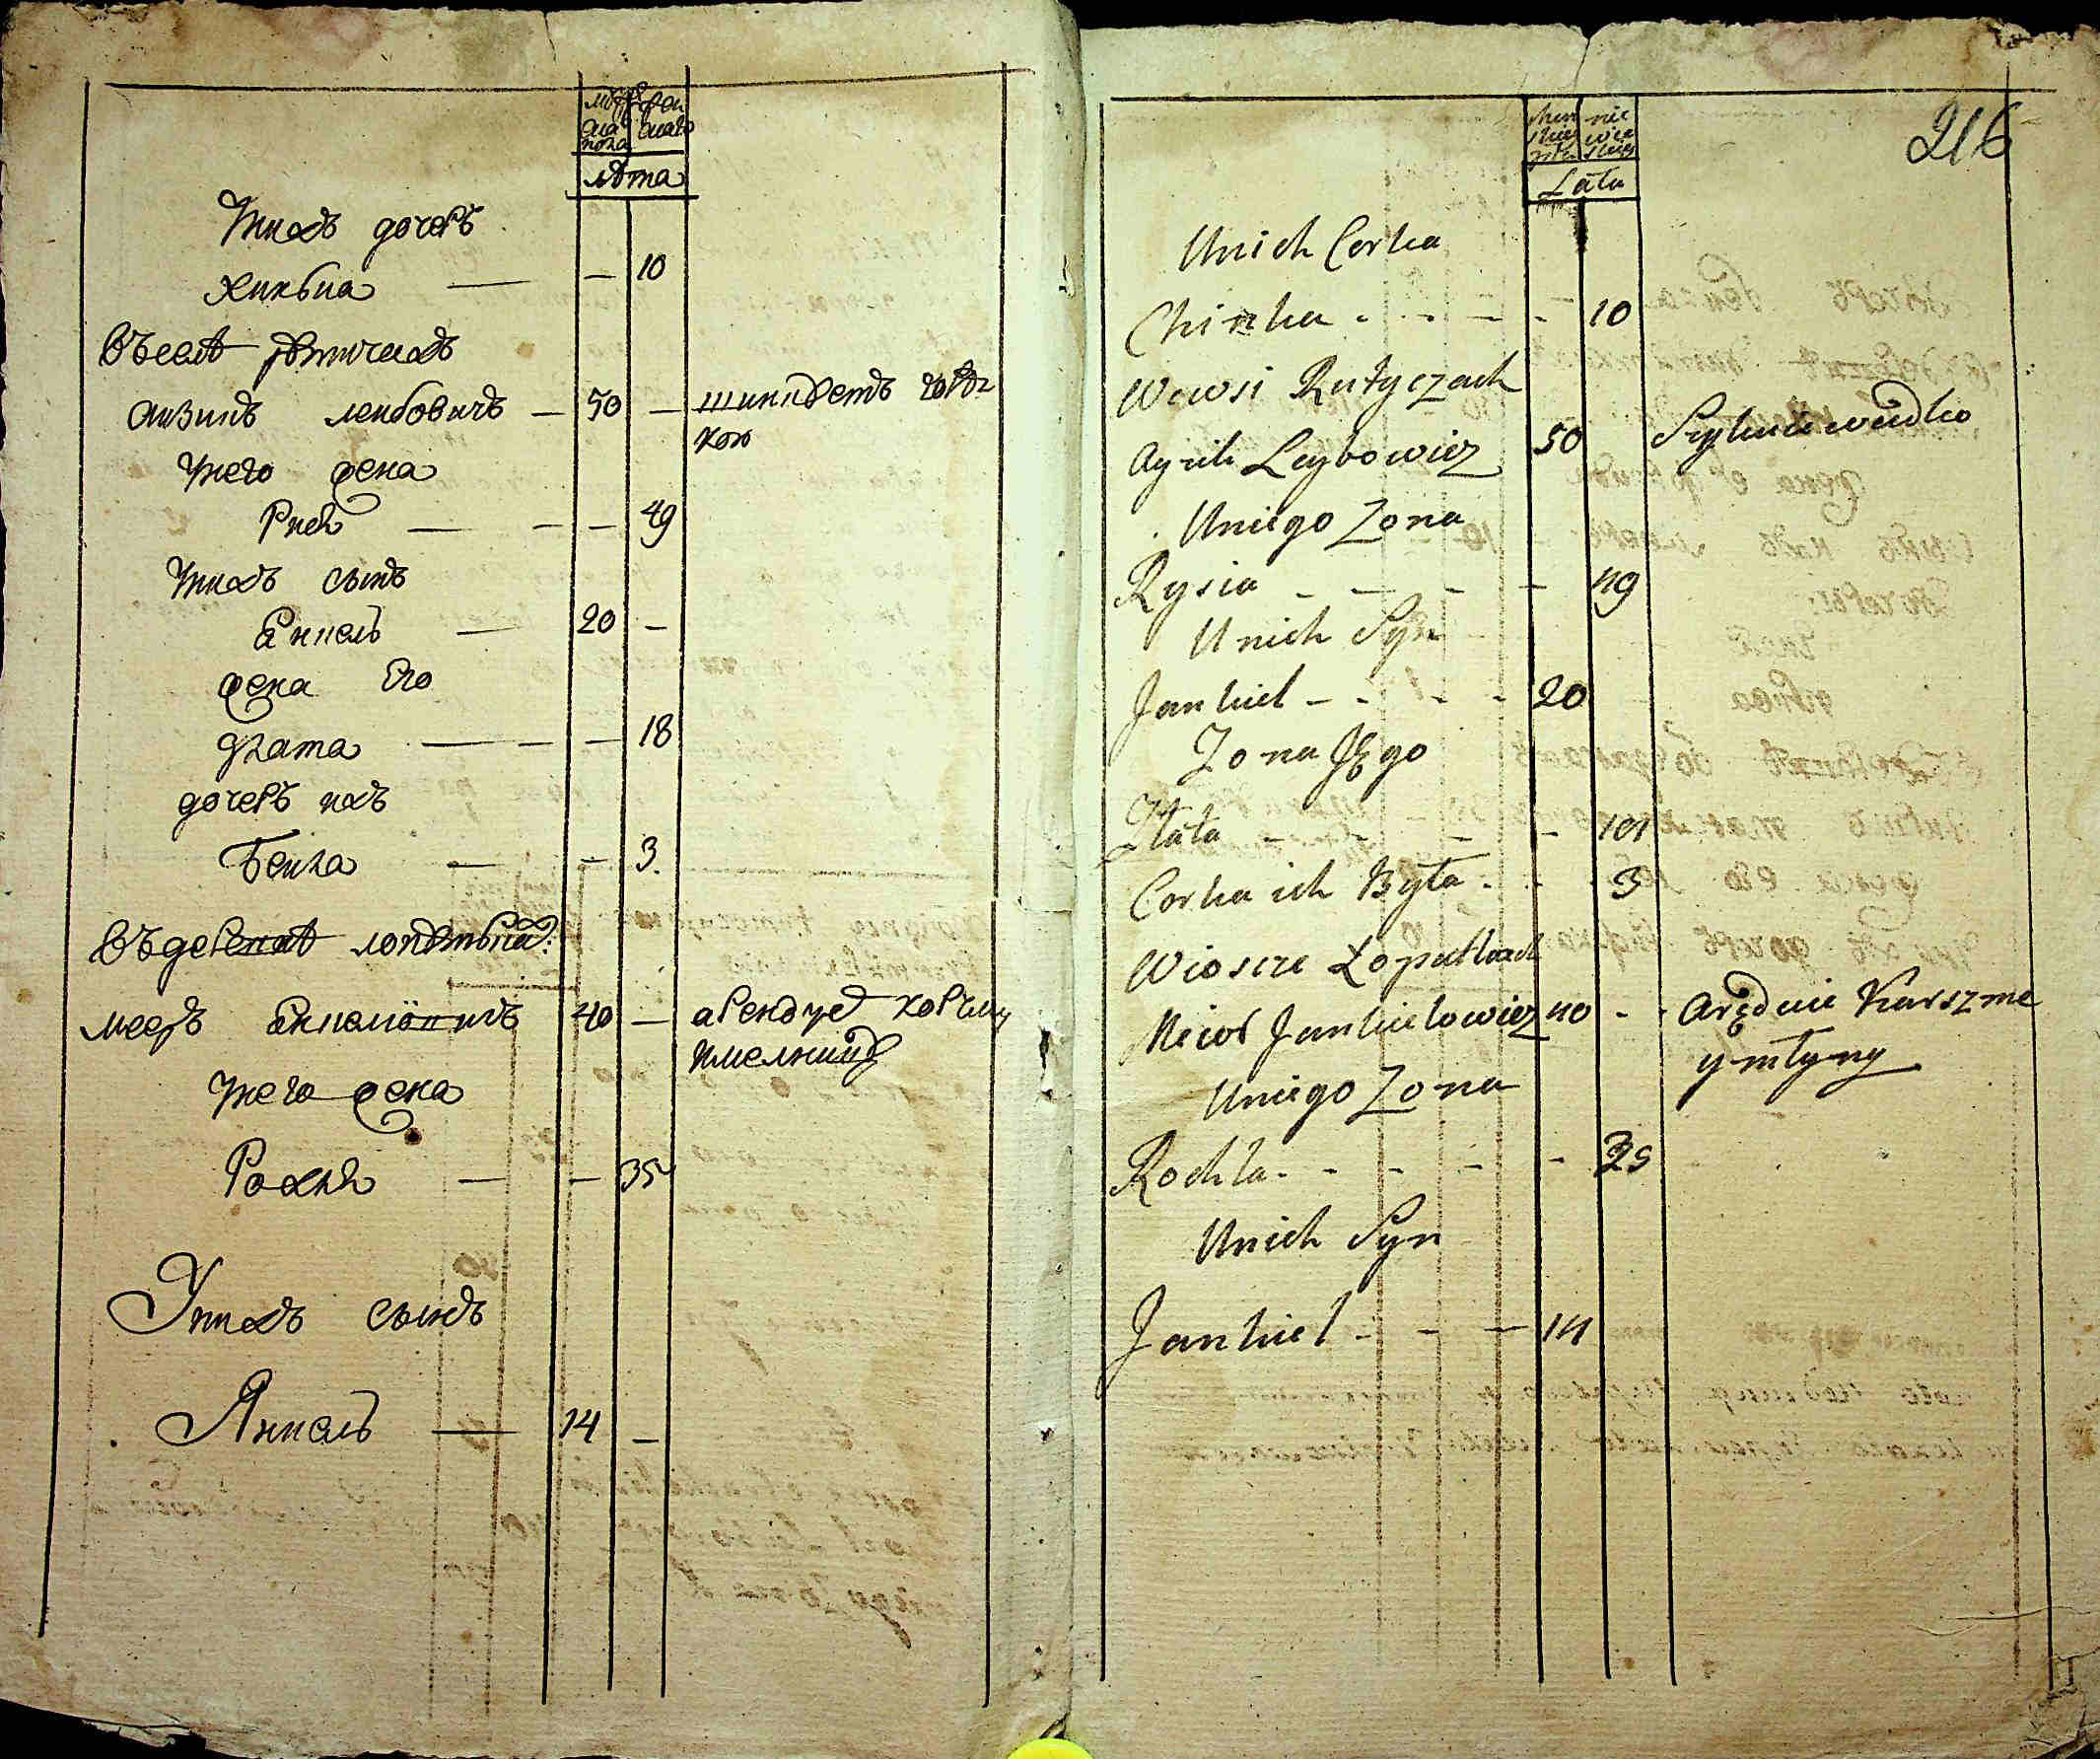 лѣта
Униихъ дочеръ
Хинька — — 10
Въселѣ рѣтичахъ
Аизикъ леибовичъ — 50 — шинкуетъ горѣл
кою
Унего жена
Рися — — — 49
Унихъ сынъ
Янкель — 20 —
жена Его
Злата — — — 18
дочеръ ихъ
Беила — — 3.
Въдеревнѣ
Меерь 40 — арендуетъ корчму
имелницу
Унего жена
Рохля — — 35
Унихъ сынъ
Янкель — 14 —
216
Lata
Unich Corka
Chinka - - - - 10
Wewsi Rutyczach
Ayzik Leybowicz 50 Szynkuie wudko
Uniego Zona
Rysia - - - - 49
Unich Syn
Jankiel - - - - 20
Zona Jego
Złata - - - - 18
Corka ich Była - - 3
Wiosce Łopatkach
Meior Jankielowicz 40 - - Aręduie Karszme
y młyny
Uniego Zona
Rochla - - - - - 35
Unich Syn
Jankiel - - - 14